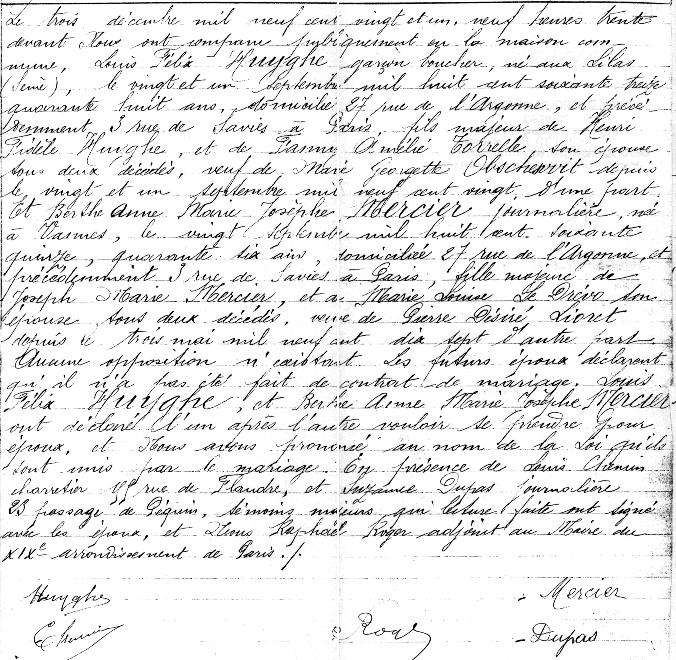 Le trois décembre mil neuf cent vingt et un, neuf heures trente
devant Nous ont comparu publiquement en la maison com
mune, Louis Félix Huyghe garçon boucher, né aux Lilas
(Seine), le vingt et un Septembre mil huit cent soixante treize
quarante huit ans, domicilié 27 rue de l'Argonne, et précé
demment 3 rue de Savies à Paris, fils majeur de Henri
Fidèle Huyghe et de Fanny Amélie Torrelle, son épouse
tous deux décédés, veuf de Marie Georgette Obschervit depuis
le vingt et un septembre mil neuf cent vingt, d'une part
Et Berthe Anne Marie Josèphe Mercier journalière, née
à Vannes, le vingt Septembre mil huit cent soixante
quinze, quarante six ans, domiciliée 27 rue de l'Argonne, et
précédemment 3 rue de Savies à Paris, fille majeure de
Joseph Marie Mercier, et de Marie Louise Le Drévo son
épouse tous deux décédés, veuve de Pierre Désiré Lioret
depuis le trois mai mil neuf cent dix sept d'autre part
Aucune opposition n'existant Les futurs époux déclarent
qu'il n'a pas été fait de contrat de mariage. Louis
Félix Huyghe, et Berthe Anne Marie Josèphe Mercier
ont déclaré l'un après l'autre vouloir se prendre pour
époux, et Nous avons prononcé au nom de la Loi qu'ils
sont unis par le mariage. En présence de Louis
charretier rue de Flandre, et Suzanne Dupas journalière
23 passage de, témoins majeurs qui lecture faite ont signé
avec les époux, et Nous Raphaël Roger adjoint au Maire du
XIXe arrondissement de Paris ./.
Huyghe Mercier
Roger Dupas